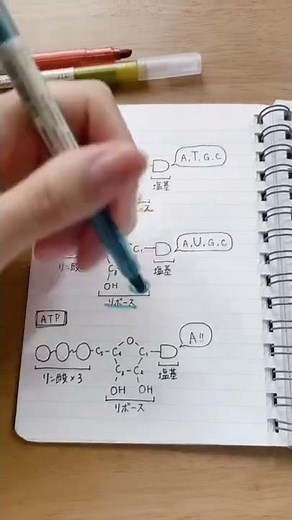 A.T.G.C
塩基
ース
A.U.G.C
リン酸
C₁
塩基
OH
リボース
ATP
A!!
O
C₅ C₄ C₁
C₃ C₂
塩基
リン酸×3
OH OH
リボース